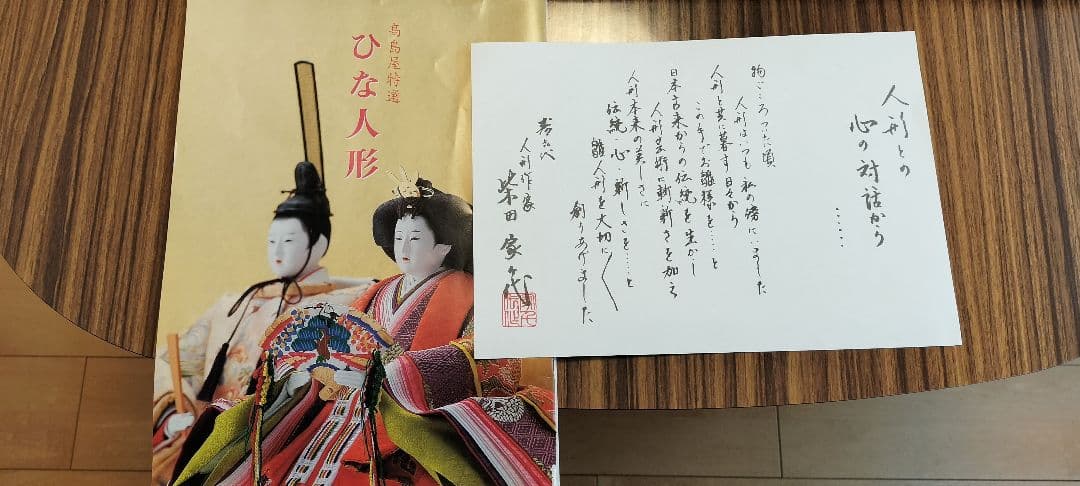 高島屋特選
ひな人形
人形との
心の対話から
……
物ごころついた頃
人形はいつも私の傍にいました
人形と共に暮す日々から
この手でお雛様を……と
日本古来からの伝統を生かし
人形芸術に斬新さを加え
人形本来の美しさに
伝統、心、新しさを……と
雛人形を大切に
創りあげました
人形作家
柴田家千代